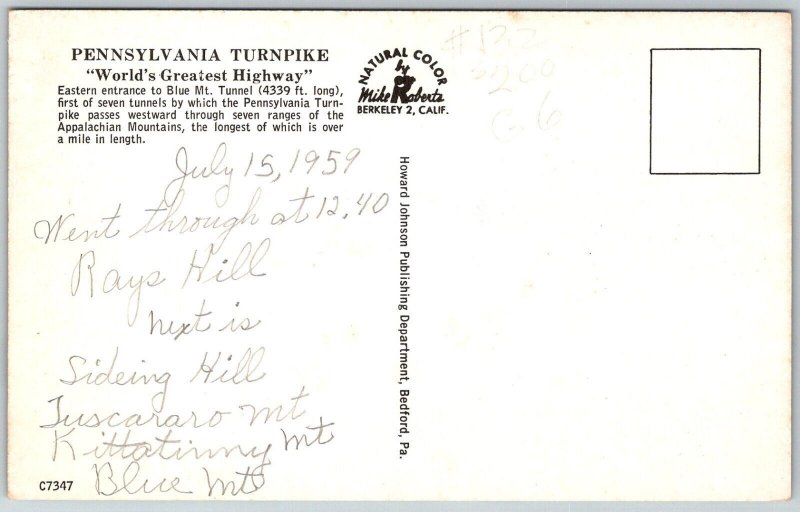 PENNSYLVANIA TURNPIKE
"World's Greatest Highway"
Eastern entrance to Blue Mt. Tunnel (4339 ft. long),
first of seven tunnels by which the Pennsylvania Turn-
pike passes westward through seven ranges of the
Appalachian Mountains, the longest of which is over
a mile in length.
July 15, 1959
Went through at 12.40
Rays Hill
next is
Sideing Hill
Tuscararo Mt
Kittatinny Mt
Blue Mt
C7347
NATURAL COLOR
by
Mike Roberts
BERKELEY 2, CALIF.
Howard Johnson Publishing Department, Bedford, Pa.
#132
200
G6